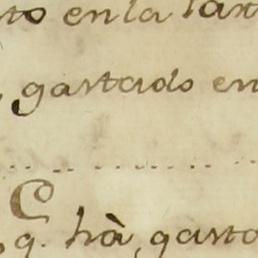 to en la
gastado en
q. hà gasto